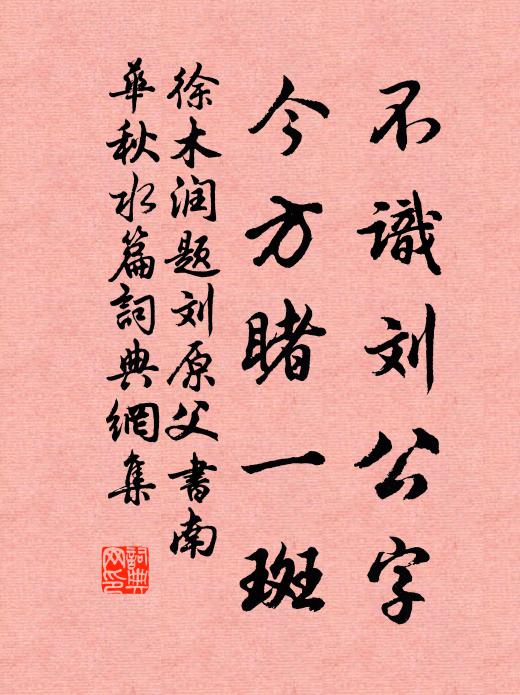 不識刘公字
今方睹一斑
徐木润题刘原父書南
華秋水篇詞典網集
詞典网印